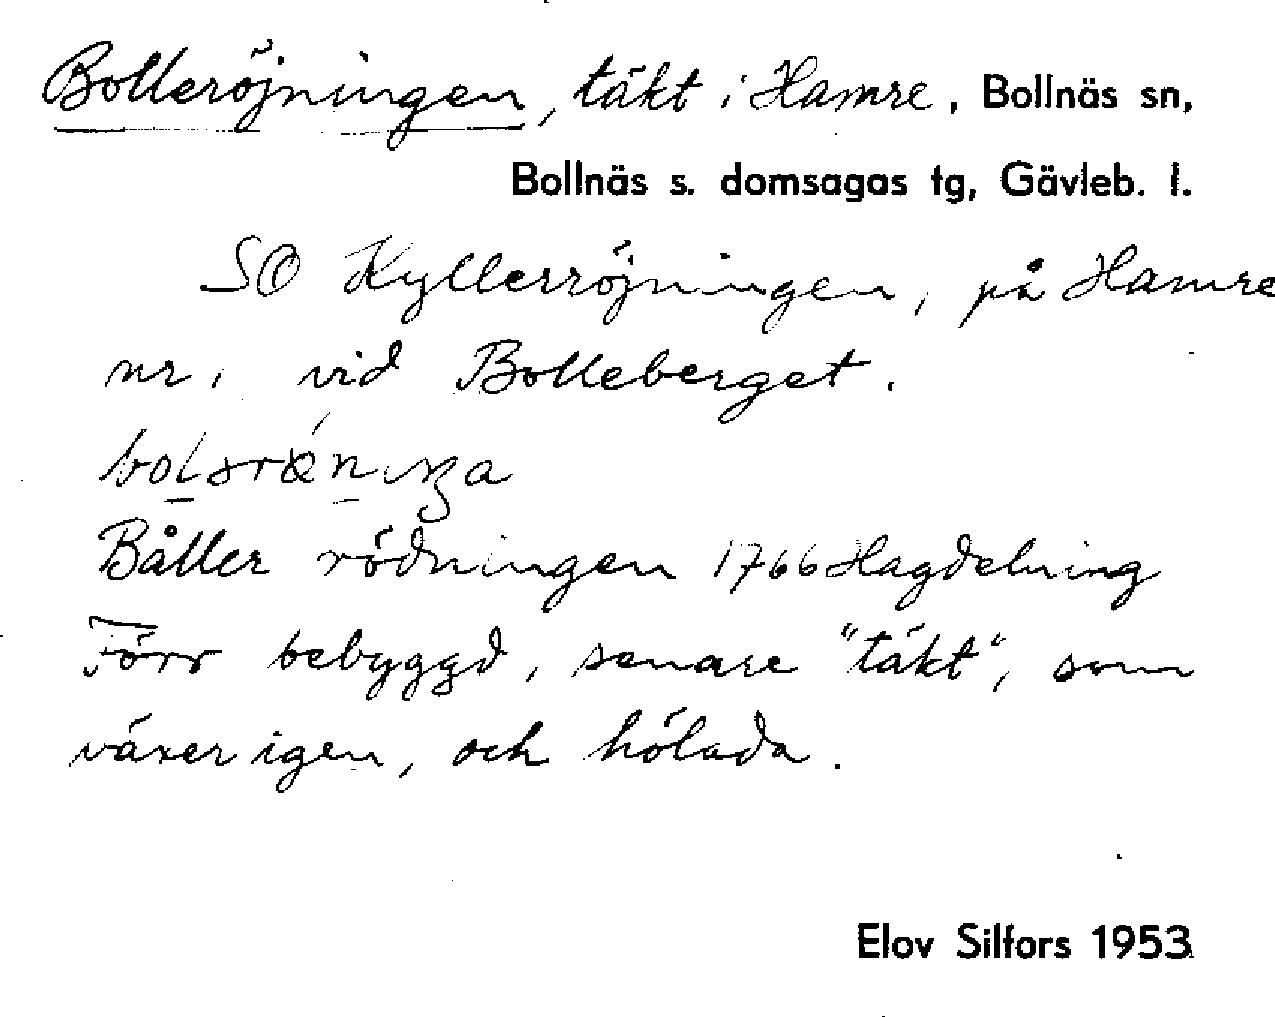 Bolleröjningen, täkt i Hamre, Bollnäs sn,
Bollnäs s. domsagas tg, Gävleb. l.
SO Kyllerröjningen, på Hamre
nr, vid Bolleberget.
Båller rödningen 1766 Hagdelning
Förr bebyggd, senare "täkt", som
växer igen, och hölada.
Elov Silfors 1953